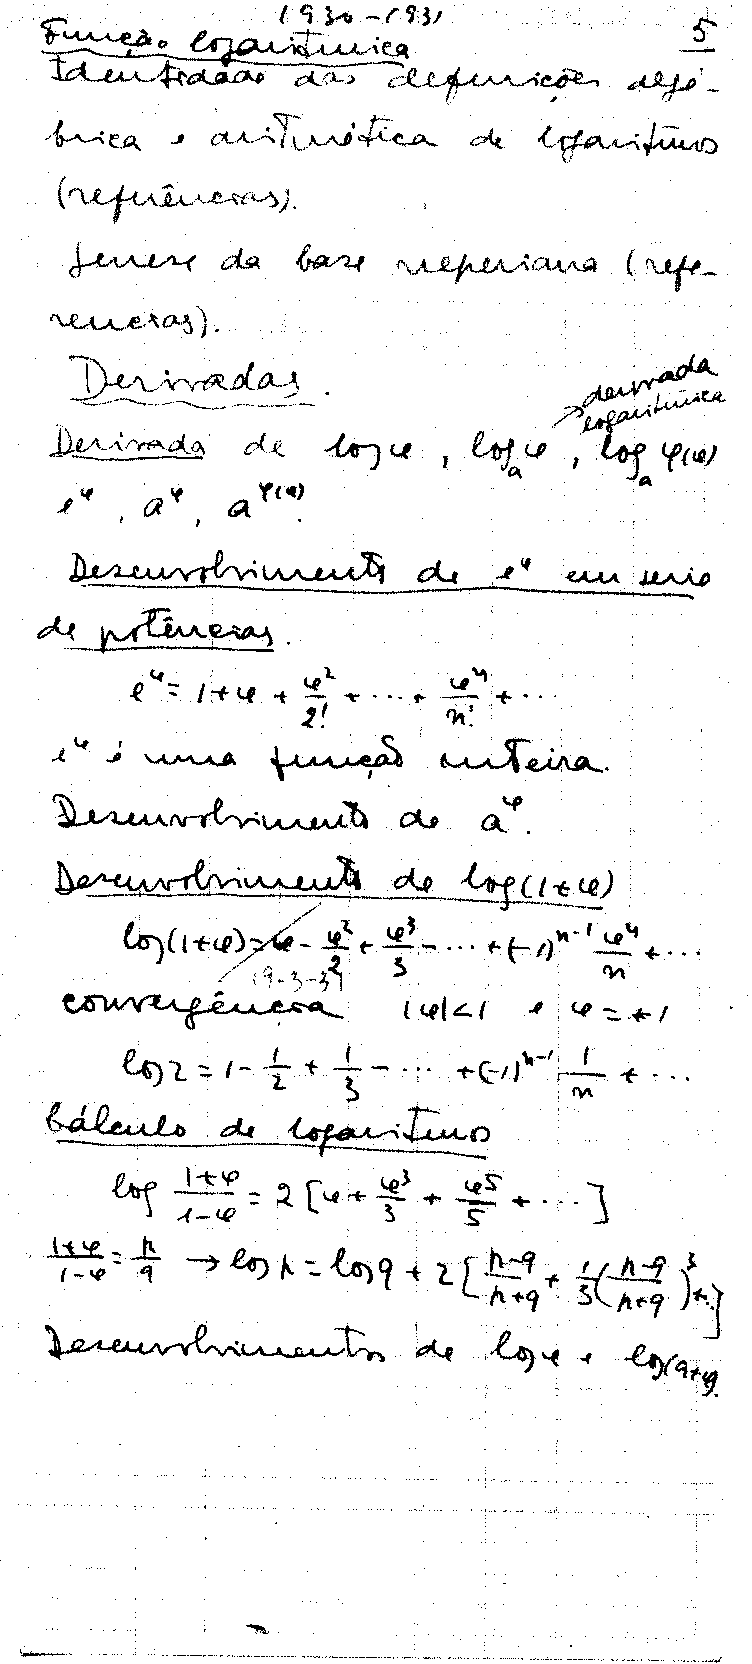 1930-1931
5
Função logaritmica
Identidade das definições algé-
brica e aritmética de logaritmos
(referências).
Genese da base neperiana (refe-
rencias).
Derivadas.
derivada
logaritmica
Derivada de log x, logₐ x, logₐ φ(x)
eˣ, aˣ, a^φ(x).
Desenvolvimento de eˣ em serie
de potências.
eˣ = 1 + x + x²/2! + ... + xⁿ/n! + ...
eˣ é uma função inteira.
Desenvolvimento de aˣ.
Desenvolvimento de log(1+x)
log(1+x) = x - x²/2 + x³/3 - ... + (-1)ⁿ⁻¹ xⁿ/n + ...
19-3-31
convergência |x|<1 e x=+1
log 2 = 1 - 1/2 + 1/3 - ... + (-1)ⁿ⁻¹ 1/n + ...
Cálculo de logaritmos
log (1+x)/(1-x) = 2[x + x³/3 + x⁵/5 + ...]
(1+x)/(1-x) = p/q → log p = log q + 2[(p-q)/(p+q) + 1/3((p-q)/(p+q))³ + ..]
Desenvolvimentos de log x e log(a+x).